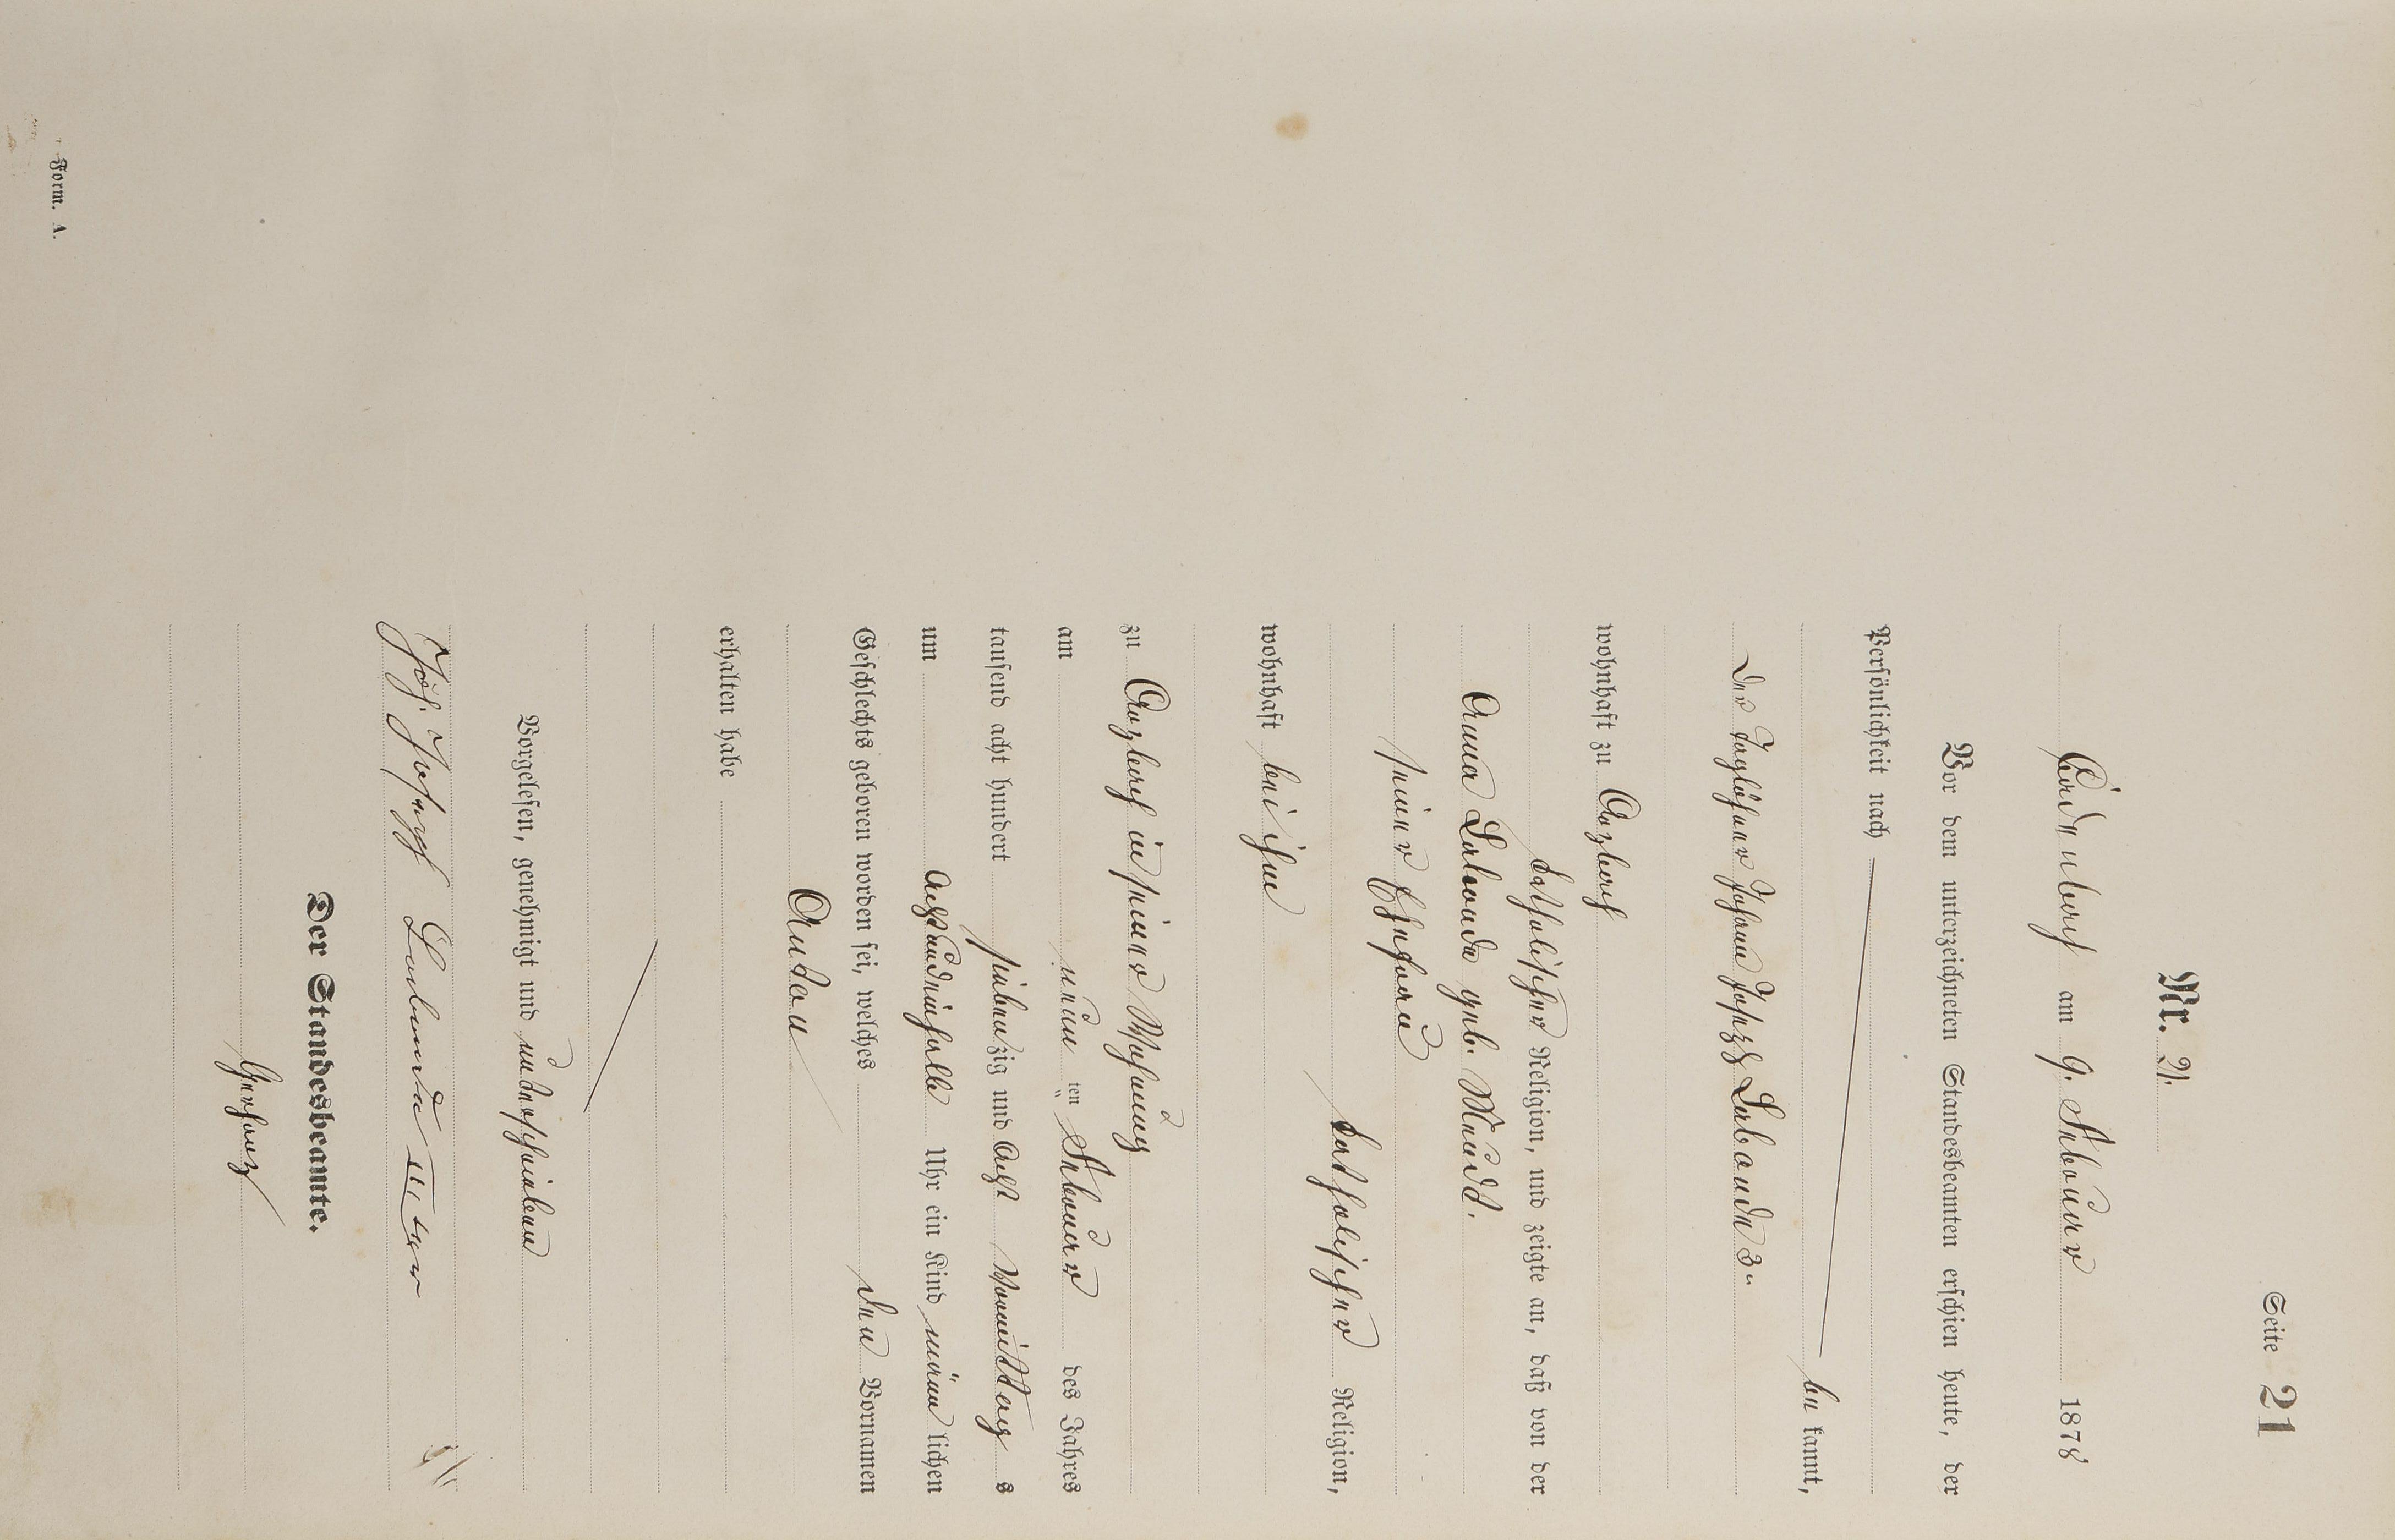 Seite 21
Nr. 2.
Cadenbach am 9. Februar 1878
Vor dem unterzeichneten Standesbeamten erschien heute, der
Persönlichkeit nach
be kannt,
der Taglöhner Johann Joseph Labonde 3r.
wohnhaft zu Arzbach
katholischer Religion, und zeigte an, daß von der
Anna Labonde geb. Meudt.
seiner Ehefrau
katholischer Religion,
wohnhaft bei ihm
zu Arzbach in seiner Wohnung
am neun ten Februar des Jahres
tausend acht hundert siebenzig und acht Vormittag s
um achtundeinhalb Uhr ein Kind männ lichen
Geschlechts geboren worden sei, welches den Vornamen
Anton
erhalten habe
Vorgelesen, genehmigt und unterschrieben
Joh. Joseph Labonde III
Der Standesbeamte.
Gerharz
Form. A.